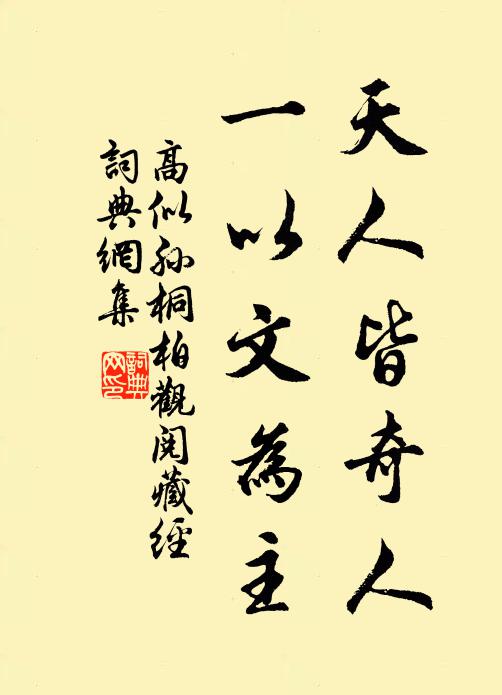 天人皆奇人
一以文為主
高似孫桐柏觀閱藏經
詞典網集
詞典網印